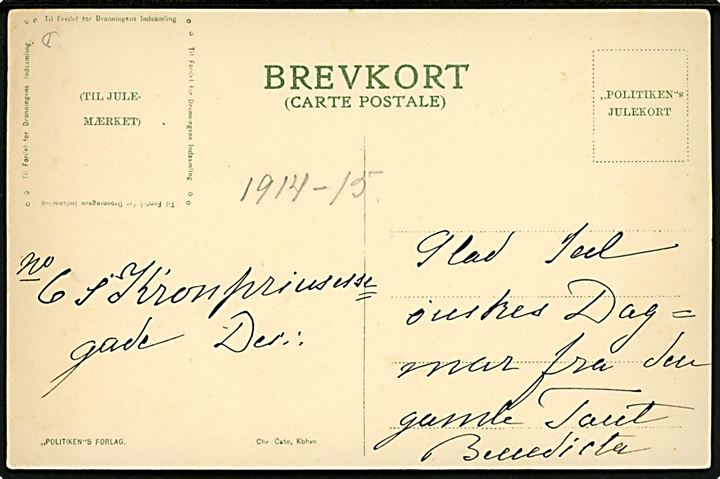 Til Fordel for Dronningens Indsamling
Til Fordel for Dronningens Indsamling
Til Fordel for Dronningens Indsamling
Til Fordel for Dronningens Indsamling
(TIL JULE-
MÆRKET)
BREVKORT
(CARTE POSTALE)
„POLITIKEN"s
JULEKORT
1914-15.
No 6 i Kronprinsesse=
gade
Glad Juul
ønskes Dag=
mar fra den
gamle Tant
Benedicta
„POLITIKEN"S FORLAG.
Chr. Cato, Kbhvn